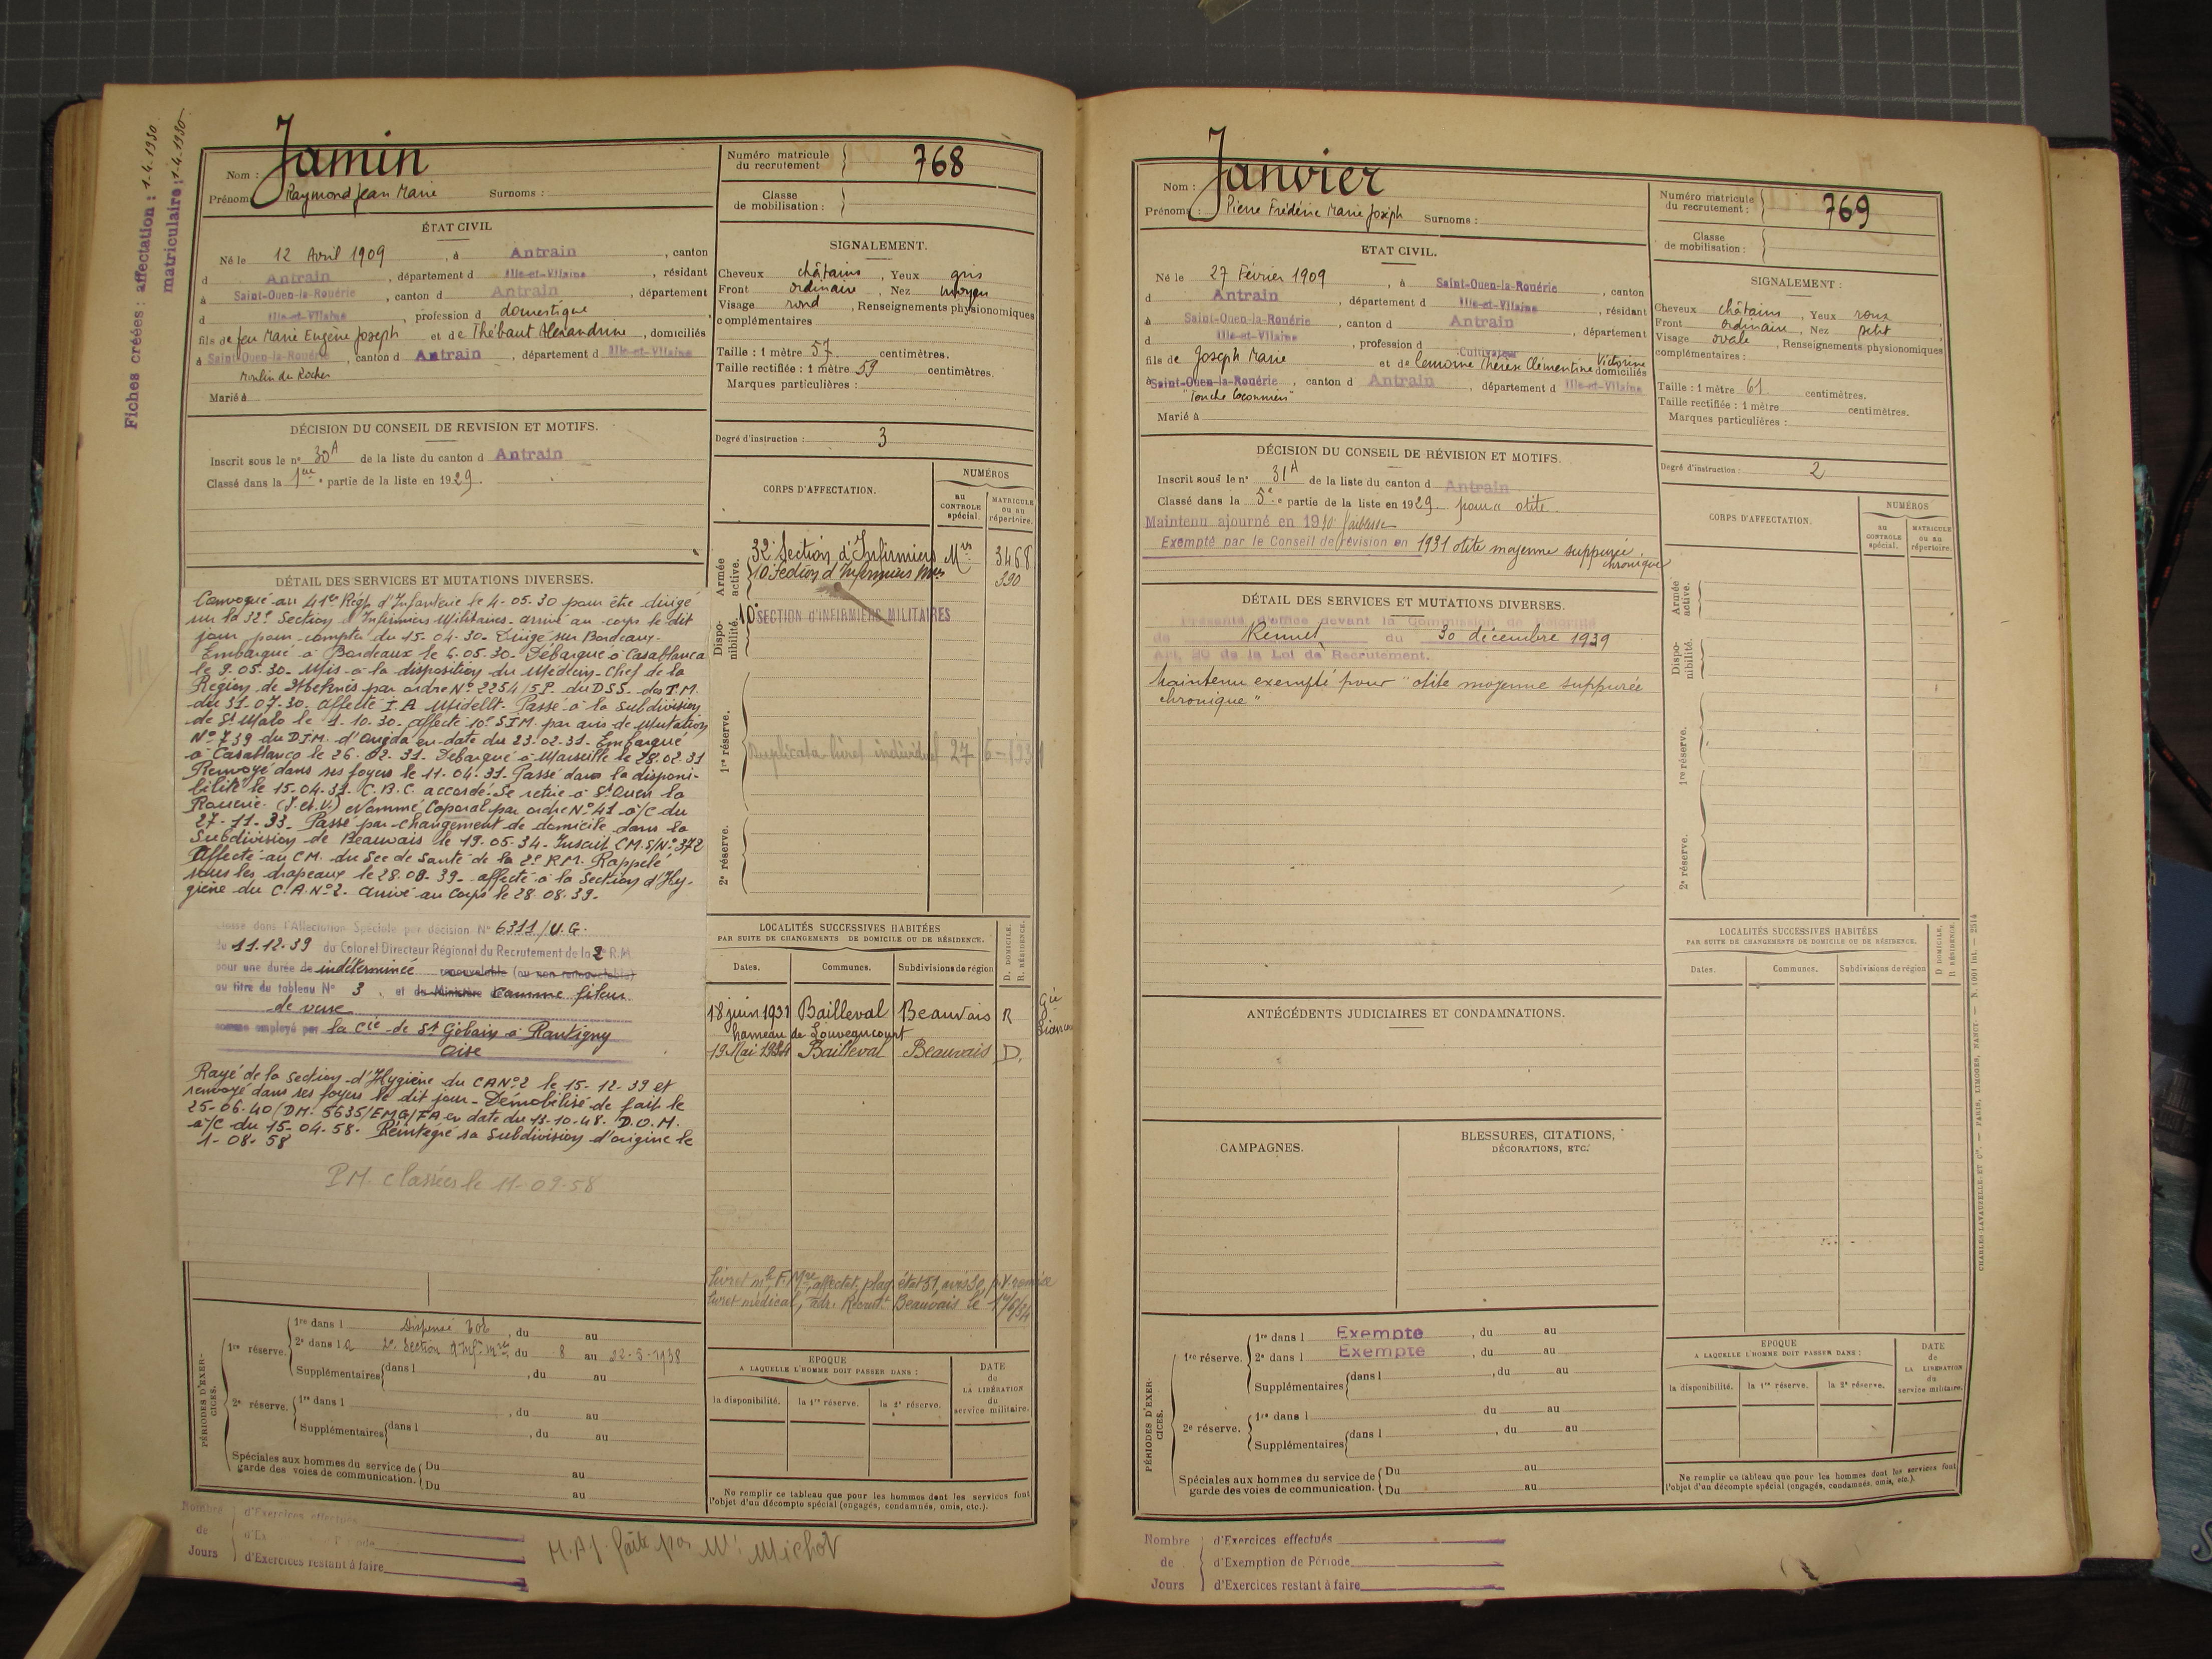 Fiches créées : affectation : 1.4.1930
matriculaire : 1.4.1930
Nom : Jamin
Prénom Raymond Jean Marie Surnoms :
ÉTAT CIVIL
Né le 12 Avril 1909, à Antrain, canton
d Antrain, département d Ille-et-Vilaine, résidant
à Saint-Ouen-la-Rouërie, canton d Antrain, département
d Ille-et-Vilaine, profession d domestique
fils de feu Marie Eugène Joseph et de Thébaut Alexandrine, domiciliés
à Saint-Ouen-la-Rouërie, canton d Antrain, département d Ille-et-Vilaine
Moulin du Rocher
Marié à
DÉCISION DU CONSEIL DE REVISION ET MOTIFS.
Inscrit sous le n° 30 A de la liste du canton d Antrain
Classé dans la 1ère partie de la liste en 1929.
DÉTAIL DES SERVICES ET MUTATIONS DIVERSES.
Convoqué au 41e Régt d'Infanterie le 4-05-30 pour être dirigé
sur la 32e Section d'Infirmiers Militaires. arrivé au corps le dit
jour, pour compter du 15-04-30. Dirigé sur Bordeaux.
Embarqué à Bordeaux le 6.05.30. Débarqué à Casablanca
le 9.05.30. Mis à la disposition du Médecin-Chef de la
Région de Meknès par ordre N° 2254/5P. du DSS. des T.M.
du 31-07-30. affecté I.A Midelt. Passé à la Subdivision
de St Malo le 1.10.30. affecté 10e S.I.M. par avis de Mutation
N° 739 du D.I.M. d'Oujda en date du 23-02-31. Embarqué
à Casablanca le 26-02-31. Débarqué à Marseille le 28.02.31
Renvoyé dans ses foyers le 11-04-31. Passé dans la disponi-
bilité le 15-04-31. C.B.C. accordé. Se retire à St Ouen la
Rouerie. (I.et.V.) Nommé Caporal par ordre N° 41 à/c du
27-11-33. Passé par changement de domicile dans la
Subdivision de Beauvais le 19.05.34. Inscrit CM.S/N° 372
Affecté au CM. du Sce de Santé de la 2e R.M. Rappelé
sous les drapeaux le 28.08.39. affecté à la Section d'Hy-
giène du C.A.N°2. arrivé au Corps le 28.08.39.
Classé dans l'Affectation Spéciale par décision N° 6311/U.G.
du 11.12.39 du Colonel Directeur Régional du Recrutement de la 2e R.M.
pour une durée de indéterminée renouvelable (ou non renouvelable)
au titre du tableau N° 3, et du Ministère comme fileur
de verre
comme employé par la Cie de St Gobain à Rantigny
Oise
Rayé de la Section d'Hygiène du CAN°2 le 15-12-39 et
renvoyé dans ses foyers le dit jour. Démobilisé de fait le
25-06-40 (DM. 5635/EMG/FA en date du 13-10-48. D.O.M.
à/c du 15-04-58. Réintégré sa Subdivision d'origine le
1-08-58
P.M. classées le 11-09-58
PÉRIODES D'EXERCICES.
1re réserve. 1re dans l Dispensé, du au
2e dans la 2e Section d'Inf. Mres, du 8 au 22-5-1938
Supplémentaires dans l, du au
2e réserve. 1re dans l, du au
Supplémentaires dans l, du au
Spéciales aux hommes du service de garde des voies de communication. Du au
Du au
Nombre de Jours d'Exercices effectués
d'Exercices restant à faire
M.A.J. faite par Mr Michot
Numéro matricule du recrutement 768
Classe de mobilisation :
SIGNALEMENT.
Cheveux châtains, Yeux gris
Front ordinaire, Nez moyen
Visage rond, Renseignements physionomiques
complémentaires
Taille : 1 mètre 57 centimètres.
Taille rectifiée : 1 mètre 59 centimètres.
Marques particulières :
Degré d'instruction : 3
CORPS D'AFFECTATION.
NUMÉROS
au CONTROLE spécial.
MATRICULE ou au répertoire.
Armée active.
32e Section d'Infirmiers Mres 3468
10 Section d'Infirmiers Mres 290
Disponibilité.
10e SECTION D'INFIRMIERS MILITAIRES
1re réserve.
Duplicata livret individuel 27-6-1931
2e réserve.
LOCALITÉS SUCCESSIVES HABITÉES
PAR SUITE DE CHANGEMENTS DE DOMICILE OU DE RÉSIDENCE.
Dates. Communes. Subdivisions de région D. DOMICILE. R. RÉSIDENCE.
18 juin 1931 Bailleval Beauvais R
hameau de Louveaucourt
19 Mai 1934 Bailleval Beauvais D.
livret médical, adr. Recrut. Beauvais le
EPOQUE
A LAQUELLE L'HOMME DOIT PASSER DANS :
la disponibilité. la 1re réserve. la 2e réserve.
DATE de LA LIBÉRATION du service militaire.
Ne remplir ce tableau que pour les hommes dont les services font
l'objet d'un décompte spécial (engagés, condamnés, omis, etc.).
Nom : Janvier
Prénoms : Pierre Frédéric Marie Joseph Surnoms :
ETAT CIVIL.
Né le 27 Février 1909, à Saint-Ouen-la-Rouërie, canton
d Antrain, département d Ille-et-Vilaine, résidant
à Saint-Ouen-la-Rouërie, canton d Antrain, département
d Ille-et-Vilaine, profession d Cultivateur
fils de Joseph Marie et de Lemoine Thérèse Clémentine Victorine domiciliés
à Saint-Ouen-la-Rouërie, canton d Antrain, département d Ille-et-Vilaine
Marié à
DÉCISION DU CONSEIL DE RÉVISION ET MOTIFS.
Inscrit sous le n° 31 A de la liste du canton d Antrain
Classé dans la 5e partie de la liste en 1929 pour otite.
Maintenu ajourné en 1930 faiblesse
Exempté par le Conseil de révision en 1931 otite moyenne suppurée
chronique
DÉTAIL DES SERVICES ET MUTATIONS DIVERSES.
Présenté d'office devant la Commission de Réforme
de Rennes du 30 décembre 1939
Art. 20 de la Loi de Recrutement.
Maintenu exempté pour "otite moyenne suppurée
chronique"
ANTÉCÉDENTS JUDICIAIRES ET CONDAMNATIONS.
CAMPAGNES.
BLESSURES, CITATIONS,
DÉCORATIONS, ETC.
PÉRIODES D'EXERCICES.
1re réserve. 1re dans l Exempte, du au
2e dans l Exempte, du au
Supplémentaires dans l, du au
2e réserve. 1re dans l du au
Supplémentaires dans l, du au
Spéciales aux hommes du service de garde des voies de communication. Du au
Du au
Nombre de Jours d'Exercices effectués
d'Exemption de Période
d'Exercices restant à faire
Numéro matricule du recrutement : 769
Classe de mobilisation :
SIGNALEMENT :
Cheveux châtains, Yeux roux
Front ordinaire, Nez petit
Visage ovale, Renseignements physionomiques
complémentaires :
Taille : 1 mètre 61 centimètres.
Taille rectifiée : 1 mètre centimètres.
Marques particulières :
Degré d'instruction : 2
CORPS D'AFFECTATION.
NUMÉROS
au CONTROLE spécial.
MATRICULE ou au répertoire.
Armée active.
Disponibilité.
1re réserve.
2e réserve.
LOCALITÉS SUCCESSIVES HABITÉES
PAR SUITE DE CHANGEMENTS DE DOMICILE OU DE RÉSIDENCE.
Dates. Communes. Subdivisions de région D DOMICILE, R. RÉSIDENCE.
EPOQUE
A LAQUELLE L'HOMME DOIT PASSER DANS :
la disponibilité. la 1re réserve. la 2e réserve.
DATE de LA LIBÉRATION du service militaire.
Ne remplir ce tableau que pour les hommes dont les services font
l'objet d'un décompte spécial (engagés, condamnés, omis, etc.).
CHARLES-LAVAUZELLE ET Cie. — PARIS, LIMOGES, NANCY.